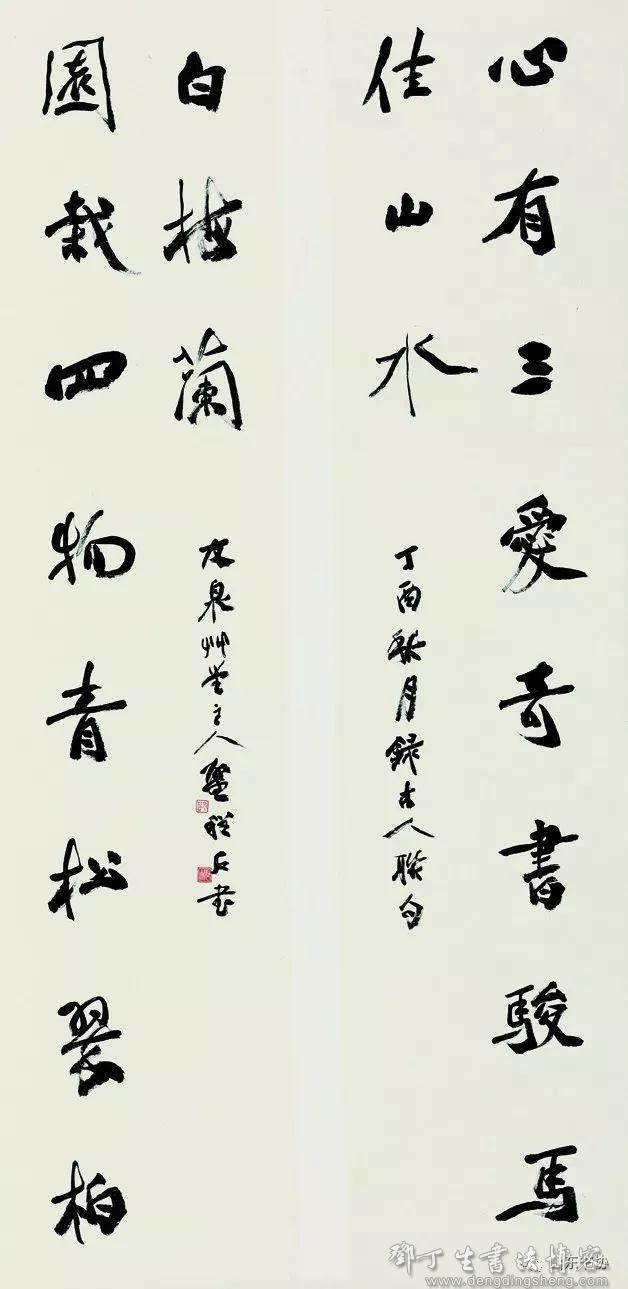 心有三愛奇書駿馬
佳山水
丁酉秋月錄古人聯句
園栽四物青松翠柏
白梅蘭
泉艸堂主人 石書
鄧丁生書法博客
www.dengdingsheng.com